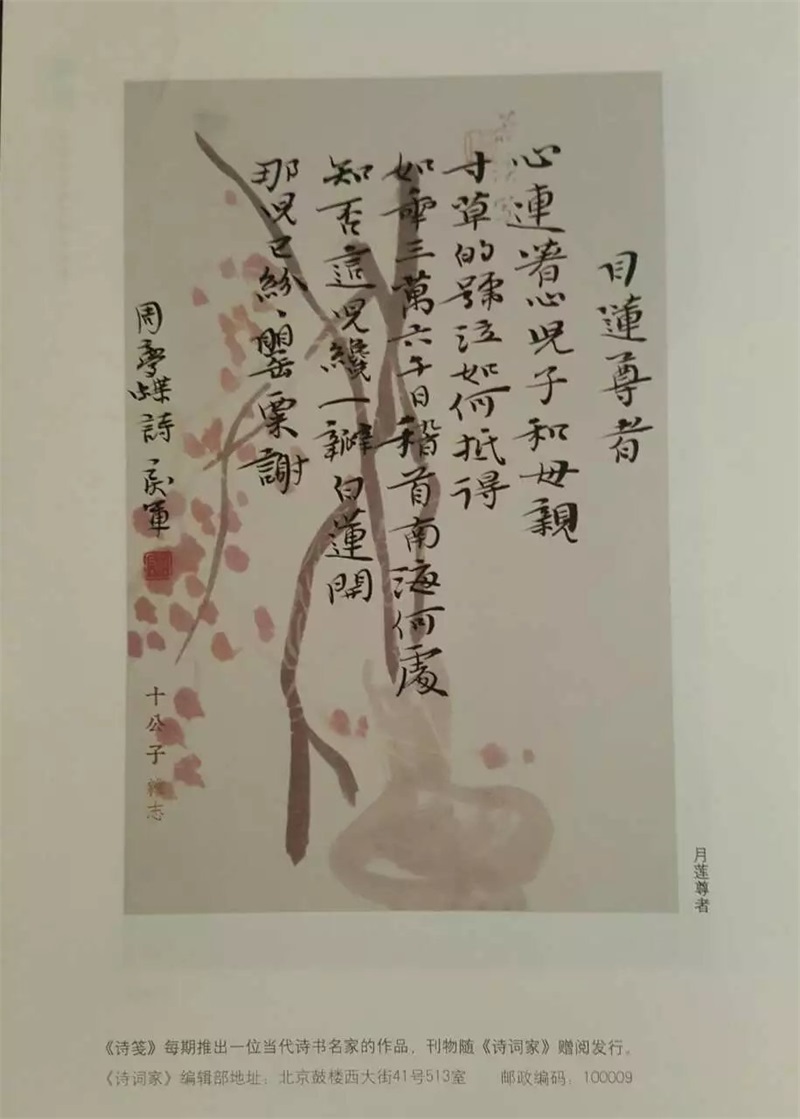 目蓮尊者
心連着心児子和母親
寸草的號泣如何抵得
如雷三萬六千日稽首南海何處
知否這児纔一瓣白蓮開
那児已紛、罌粟謝
周夢蝶詩
軍
十公子
雜志
月莲尊者
《诗笺》每期推出一位当代诗书名家的作品，刊物随《诗词家》赠阅发行。
《诗词家》编辑部地址：北京鼓楼西大街41号513室 邮政编码：100009